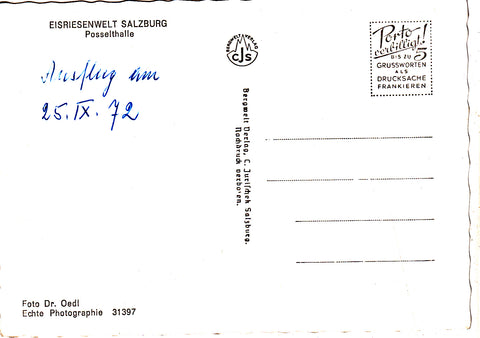 EISRIESENWELT SALZBURG
Posselthalle
Ausflug am
25.IX.72
BERGWELT VERLAG
CJS
Porto
verbilligt!
BIS ZU 5
GRUSSWORTEN
ALS
DRUCKSACHE
FRANKIEREN
Bergwelt Verlag, C. Jurischek Salzburg.
Nachdruck verboten.
Foto Dr. Oedl
Echte Photographie 31397